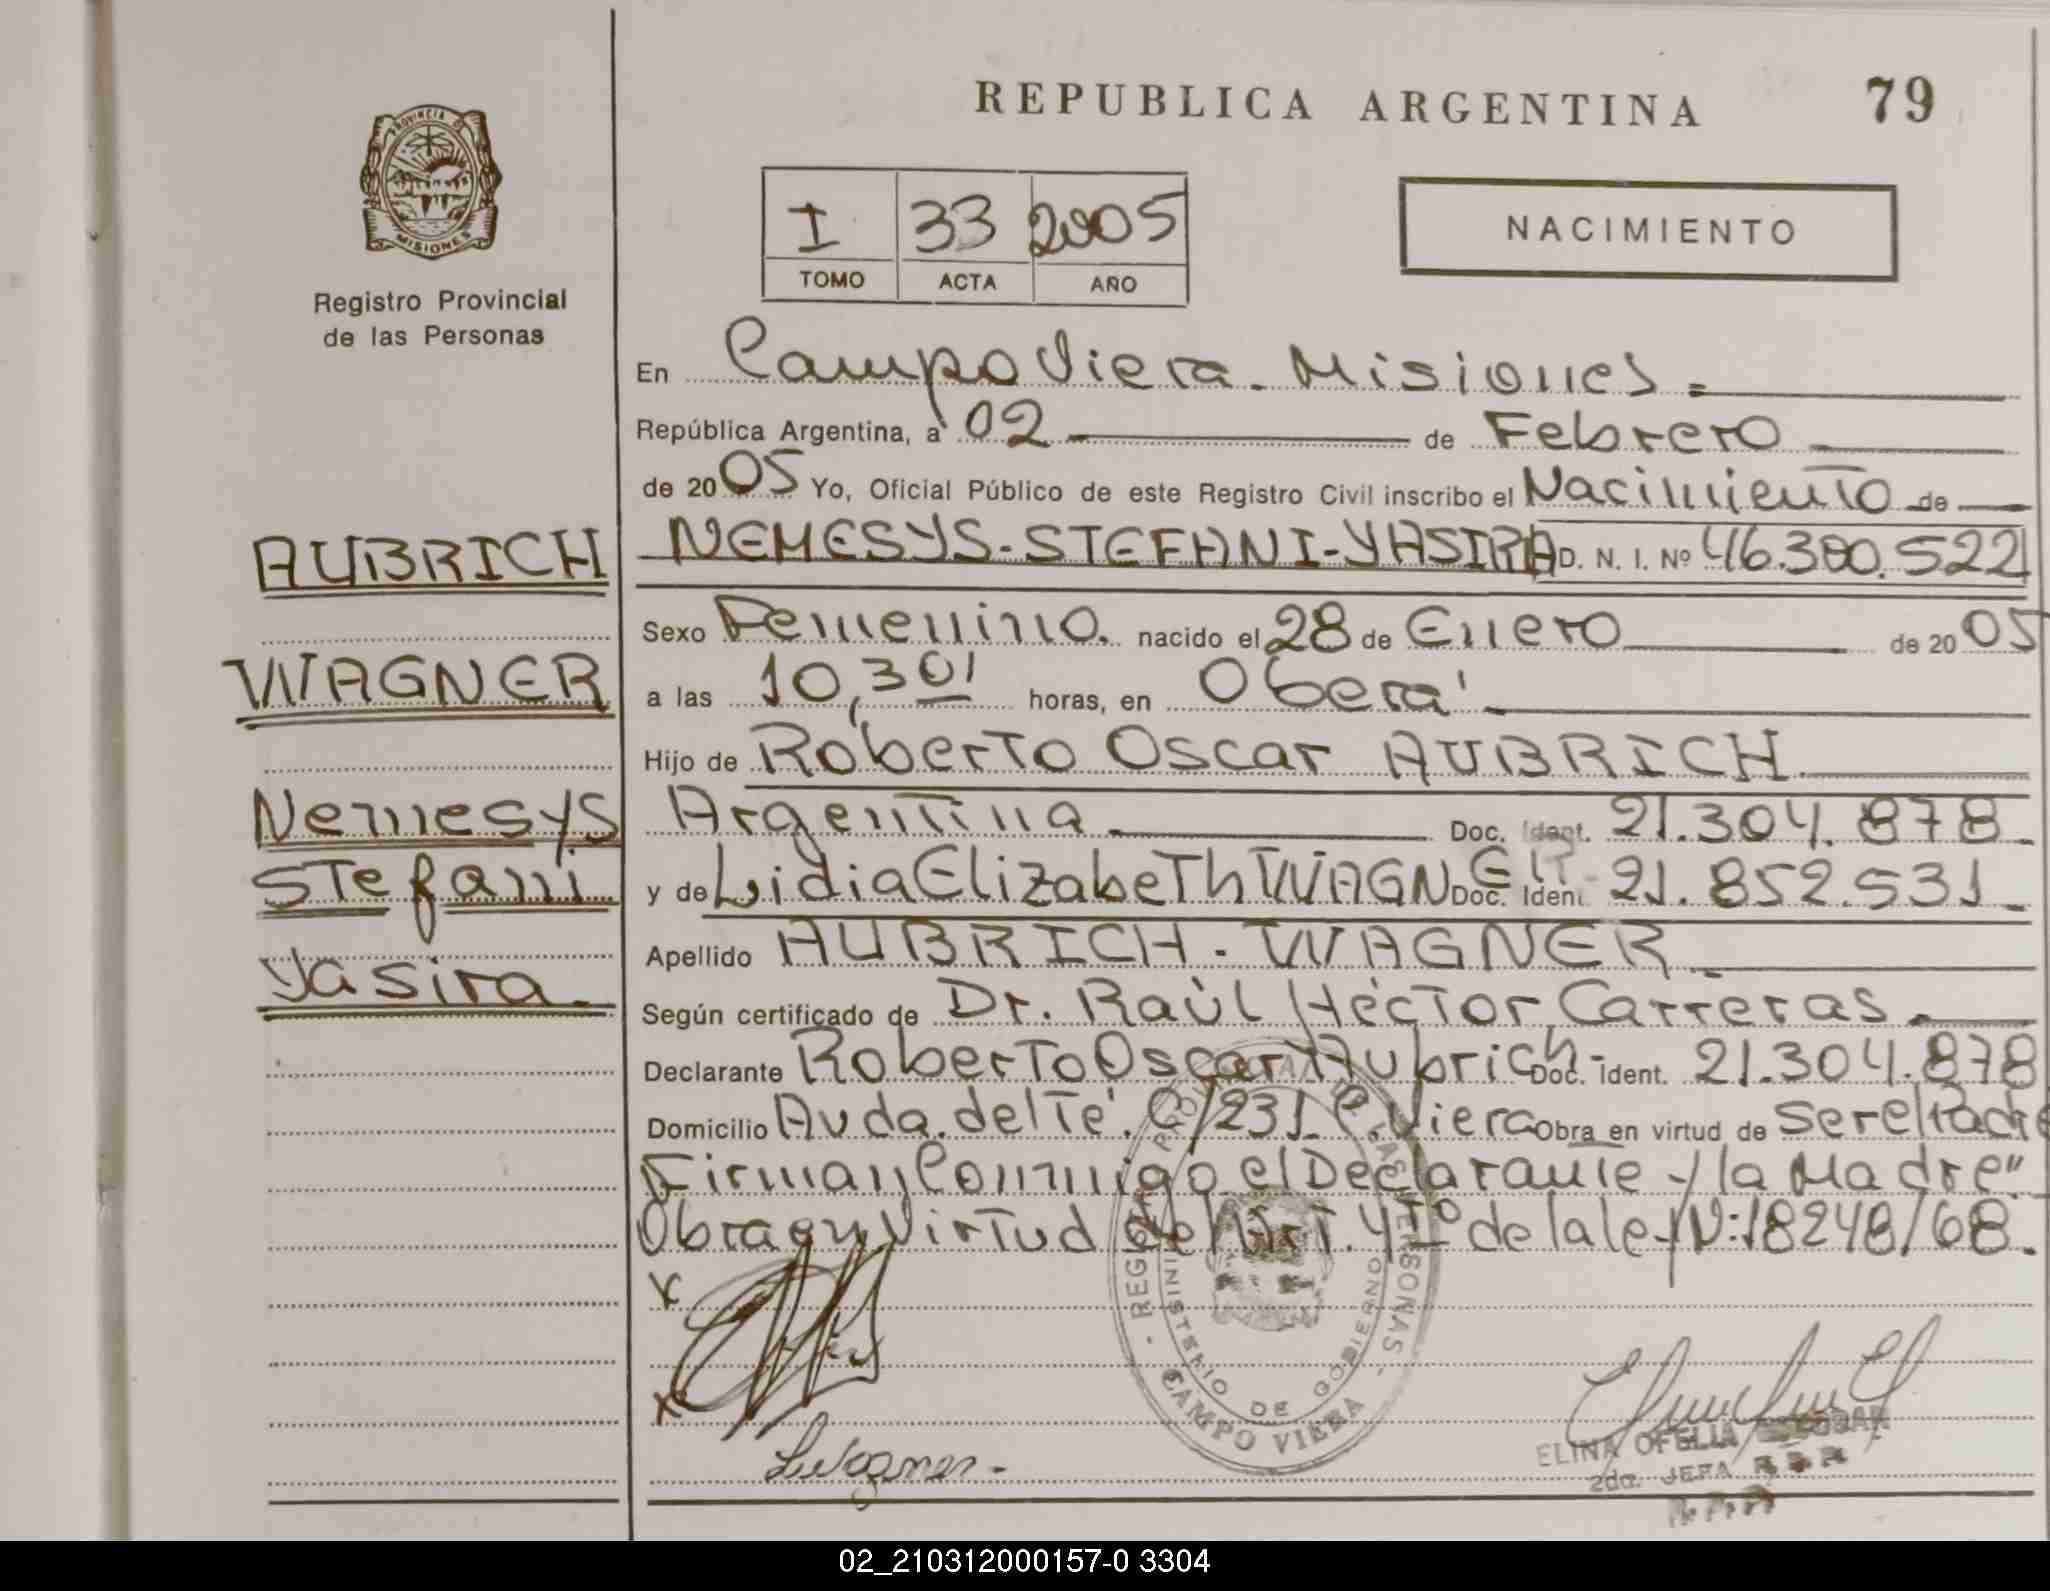 REPUBLICA ARGENTINA 79
PROVINCIA DE
MISIONES
Registro Provincial
de las Personas
I 33 2005
TOMO ACTA AÑO
NACIMIENTO
En Campo Viera - Misiones.
República Argentina, a 02 de Febrero
de 2005 Yo, Oficial Público de este Registro Civil inscribo el Nacimiento de
NEMESYS-STEFANI-YASIRA D. N. I. Nº 46.380.522
Sexo Femenino. nacido el 28 de Enero de 2005
a las 10,30' horas, en Oberá
Hijo de Roberto Oscar AUBRICH
Argentina Doc. Ident. 21.304.878
y de Lidia Elizabeth WAGNER Doc. Ident. 21.852.531
Apellido AUBRICH - WAGNER
Según certificado de Dr. Raúl Héctor Carreras
Declarante Roberto Oscar Aubrich - Doc. ident. 21.304.878
Domicilio Avda. del Té. C/231 C. Viera Obra en virtud de ser el Padre
Firman Conmigo el Declarante y la Madre"
Obra en Virtud del Art. 41º de la ley N: 18248/68.
AUBRICH
WAGNER
Nemesys
Stefani
Yasira
x
x
LWagner
REGISTRO PROVINCIAL DE LAS PERSONAS
MINISTERIO DE GOBIERNO
CAMPO VIERA
ELINA OFELIA ESCOBAR
2da. JEFA
02_210312000157-0 3304